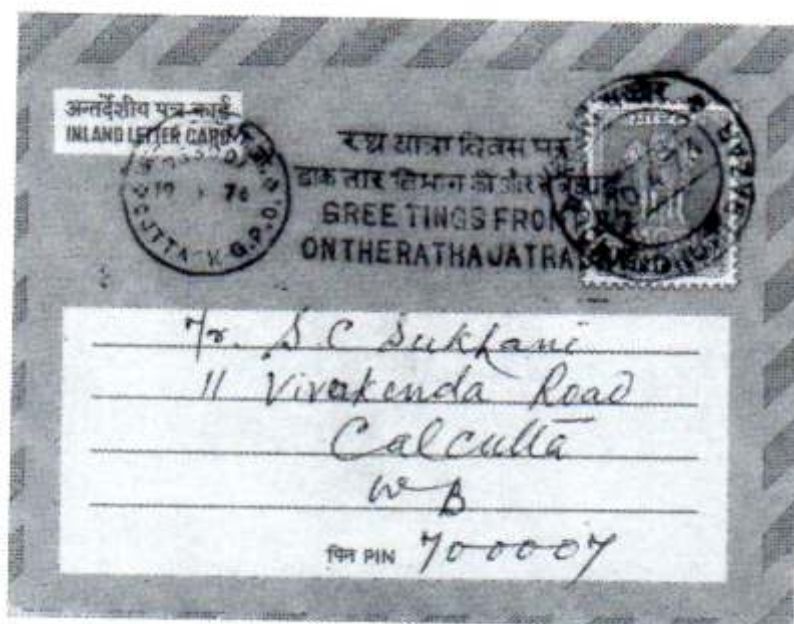 अन्तर्देशीय पत्र कार्ड
INLAND LETTER CARD
रथ यात्रा दिवस पर
डाक तार विभाग की ओर से
GREETINGS FROM
ON THE RATHA JATRA
CUTTACK G.P.O.
Mr. S C Sukhani
11 Vivekenda Road
Calcutta
W B
पिन PIN 700007